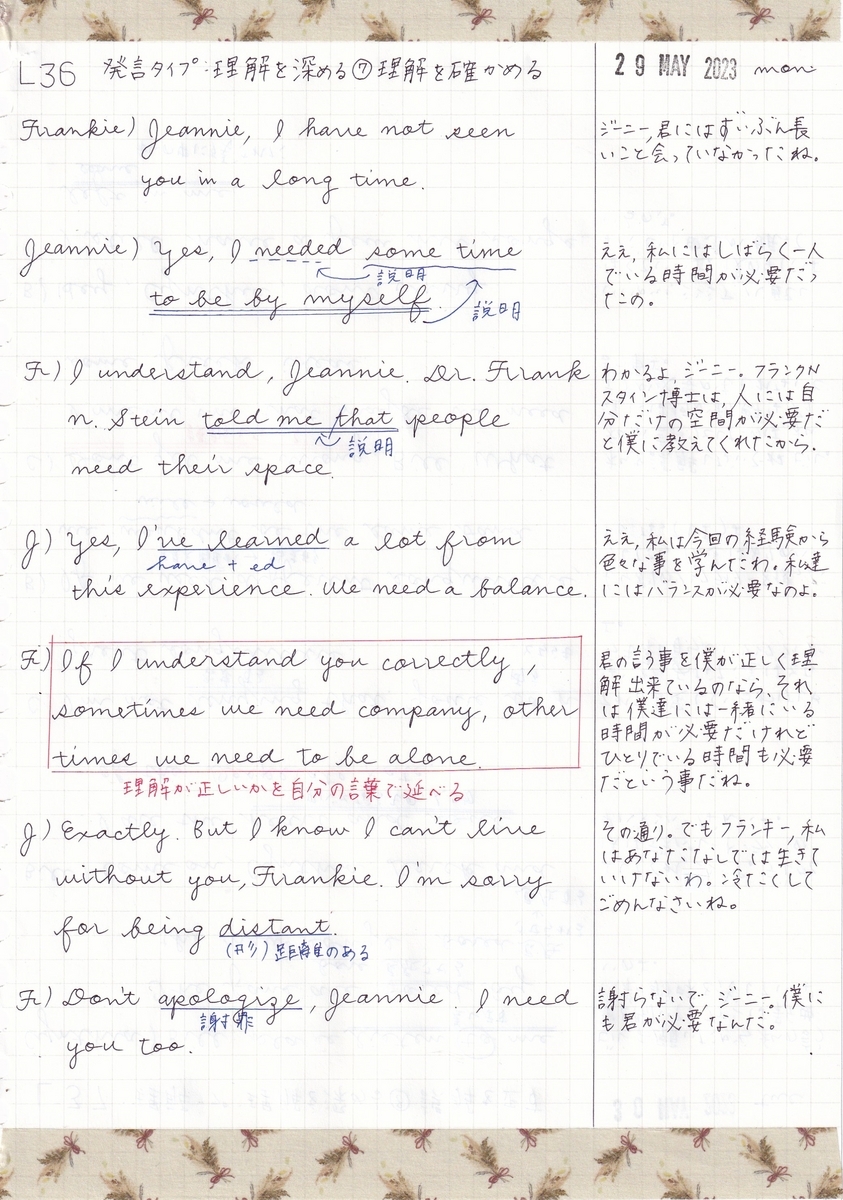 L36 発言タイプ:理解を深める⑦理解を確かめる
29 MAY 2023 mon.
Frankie) Jeannie, I have not seen
you in a long time.
ジーニー,君にはずいぶん長
いこと会っていなかったね。
Jeannie) Yes, I needed some time
説明
to be by myself.
説明
ええ,私にはしばらく一人
でいる時間が必要だっ
たの。
Fr) I understand, Jeannie. Dr. Frank
n. Stein told me that people
説明
need their space.
わかるよ,ジーニー。フランクN
スタイン博士は,人には自
分だけの空間が必要だ
と僕に教えてくれたから.
J) Yes, I've learned a lot from
have + ed
this experience. We need a balance.
ええ,私は今回の経験から
色々な事を学んだわ。私達
にはバランスが必要なのよ。
Fr) If I understand you correctly,
sometimes we need company, other
times we need to be alone.
理解が正しいかを自分の言葉で延べる
君の言う事を僕が正しく理
解出来ているのなら、それ
は僕達には一緒にいる
時間が必要だけれど
ひとりでいる時間も必要
だという事だね。
J) Exactly. But I know I can't live
without you, Frankie. I'm sorry
for being distant.
(形) 距離のある
その通り。でもフランキー,私
はあなたなしでは生きて
いけないわ。冷たくして
ごめんなさいね。
Fr) Don't apologize, Jeannie. I need
謝罪
you too.
謝らないで,ジーニー。僕に
も君が必要なんだ。